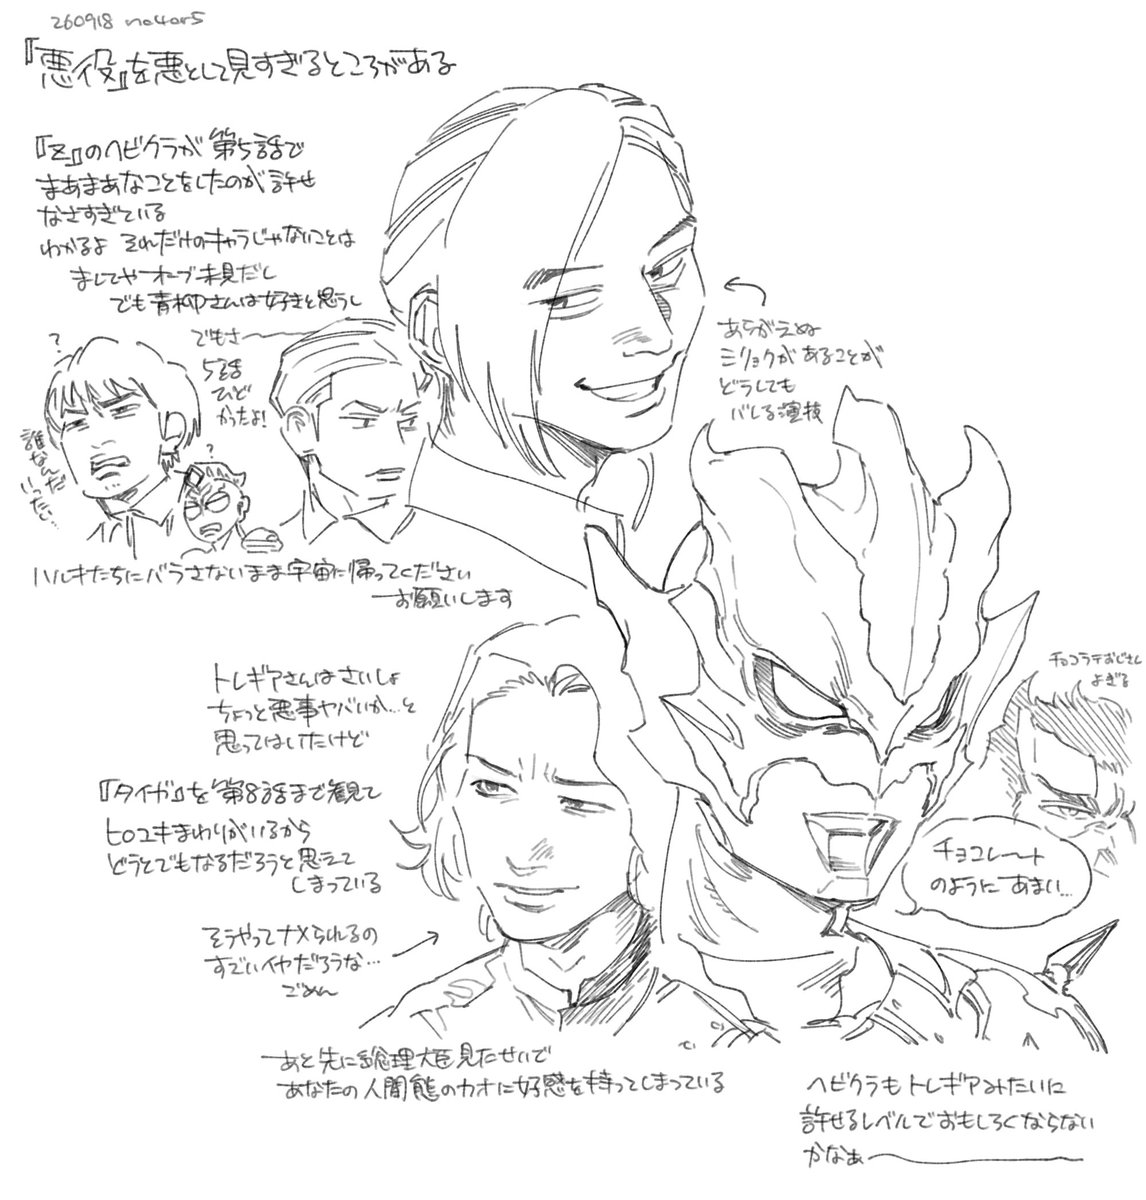 260918 no4or5
『悪役』を悪として見すぎるところがある
『Z』のヘビクラが第5話で
まあまあなことをしたのが許せ
なさすぎている
わかるよ それだけのキャラじゃないことは
ましてやオーブ未見だし
でも青柳さんは好きと思うし
でもさ〜
5話
ひど
かったよ!
?
誰なんだ
いったい…
?
ハルキたちにバラさないまま宇宙に帰ってください
お願いします
あらがえぬ
ミリョクがあることが
どうしても
バレる演技
トレギアさんはさいしょ
ちょっと悪事ヤバいか…と
思ってはいたけど
『タイガ』を第8話まで観て
ヒロユキまわりがいるから
どうとでもなるだろうと思えて
しまっている
そうやってナメられるの
すごいイヤだろうな…
ごめん
あと先に総理大臣見たせいで
あなたの人間態のカオに好感を持ってしまっている
チョコラテおじさん
よぎる
チョコレート
のように あまい…
ヘビクラもトレギアみたいに
許せるレベルでおもしろくならない
かなぁ